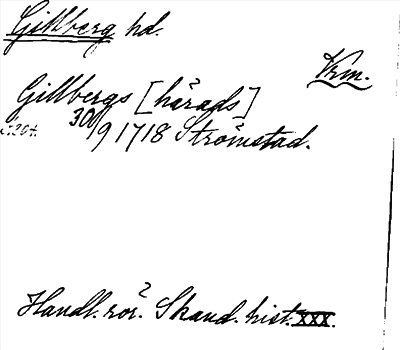 Gillberg hd.
Vrm.
Gillbergs [härads]
s. 204. 30/9 1718 Strömstad.
Handl. rör. Skand. hist. XXX.